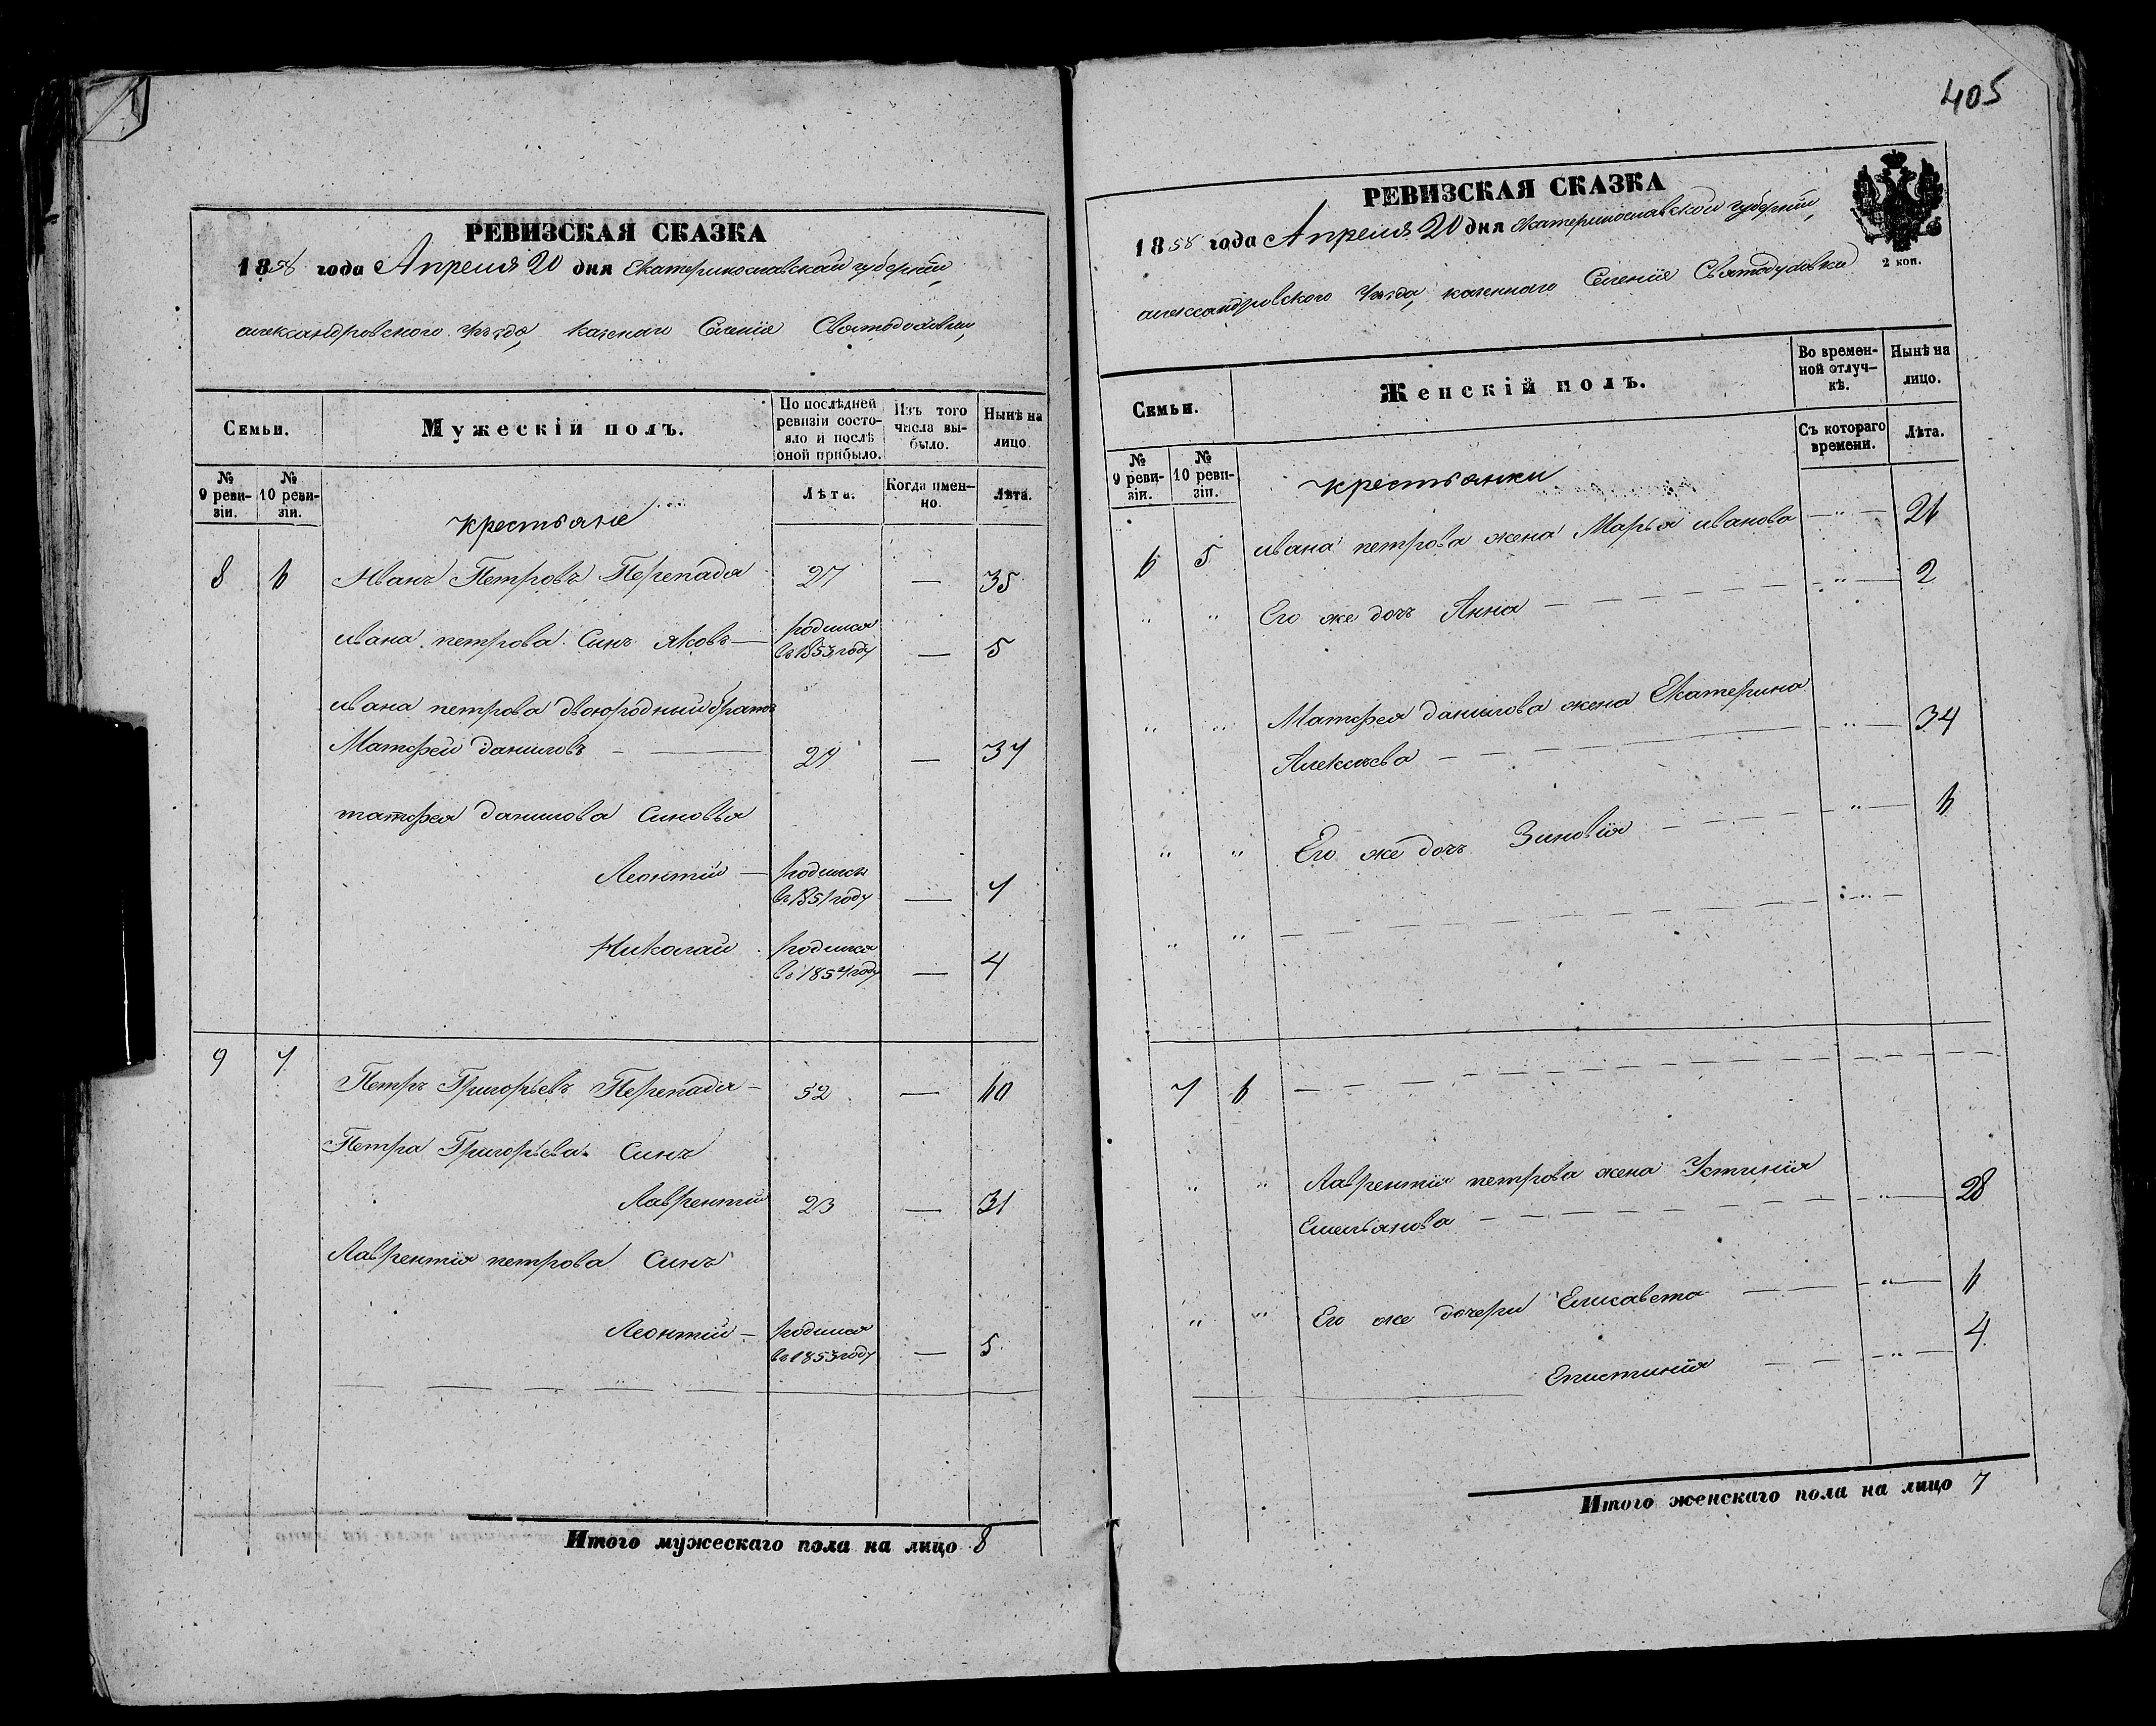 405
РЕВИЗСКАЯ СКАЗКА
1858 года Апреля 20 дня Екатеринославской губернии,
александровского уезда, казенаго Селенiе Святодуховки,
Семьи.
Мужескій полъ.
По послѣдней ревизіи состояло и послѣ оной прибыло.
Изъ того числа выбыло.
Нынѣ на лицо.
№ 9 ревизіи.
№ 10 ревизіи.
Лѣта.
Когда именно.
Лѣта.
крестьяне
8 6 Иванъ Петровъ Перепадя 27 — 35
ивана петрова Синъ яковъ — родился въ 1853 году — 5
ивана петрова двоюродный братъ
Матфей даниловъ — 27 — 37
матфея данилова Синовья
Леонтий — родился въ 1851 году — 7
Николай родился въ 1854 году — 4
9 7 Петръ Григорьевъ Перепадя — 52 — 60
Петра Григорьева Синъ
Лаврентий 23 — 31
Лаврентия петрова Синъ
Леонтий — родился въ 1853 году — 5
Итого мужескаго пола на лицо 8
РЕВИЗСКАЯ СКАЗКА
1858 года Апреля 20 дня Екатеринославской губернии,
2 коп.
александровского уезда, казеннаго Селенiе Святодуховки
Семьи.
Женскій полъ.
Во временной отлучкѣ.
Нынѣ на лицо.
№ 9 ревизіи.
№ 10 ревизіи.
Съ котораго времени.
Лѣта.
крестьянки
6 5 ивана петрова жена Марья иванова — " — 26
" " Его же дочъ Анна — " — 2
" " Матфея данилова жена Екатерина
Алексѣева — " — 34
" " Его же дочъ Зиновія — " — 6
" " — " —
7 6 —
" " Лаврентiя петрова жена Устинiя
Емельянова — " — 28
" " Его же дочери Елисавета — " — 6
Епистинiя — " — 4
Итого женскаго пола на лицо 7